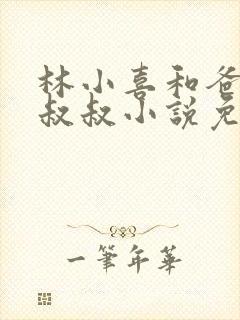 林小喜和爸
叔叔小説免
一筆年華